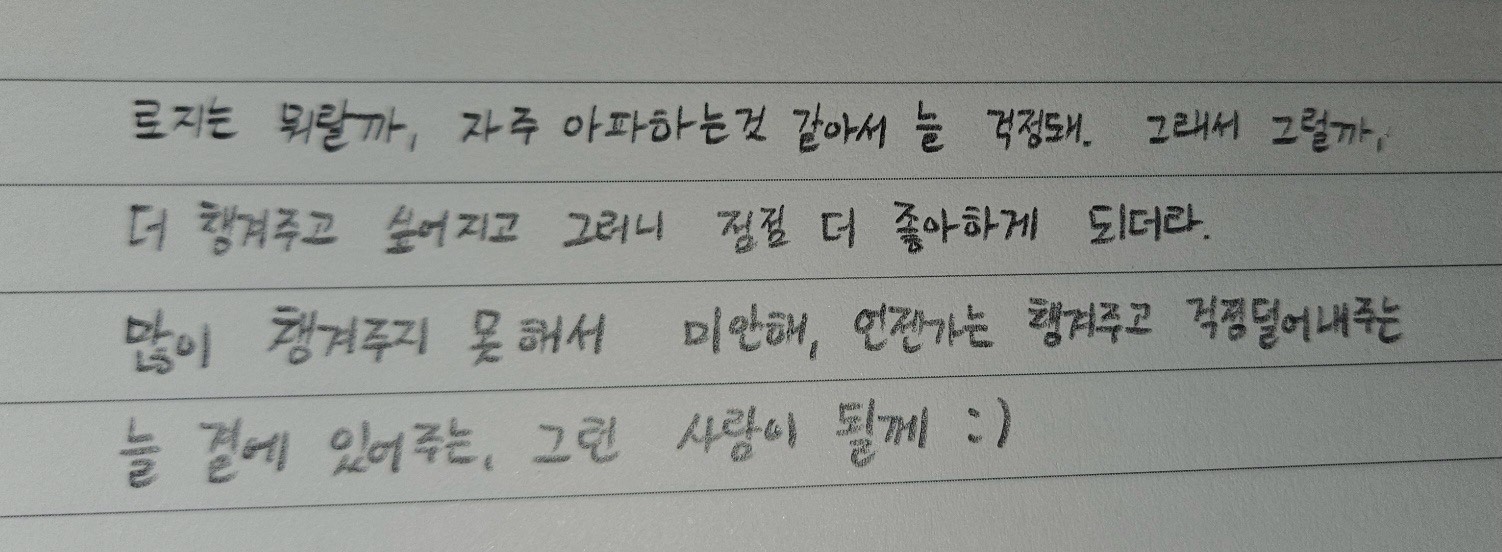 로지는 뭐랄까, 자주 아파하는것 같아서 늘 걱정돼. 그래서 그럴까,
더 챙겨주고 싶어지고 그러니 점점 더 좋아하게 되더라.
많이 챙겨주지 못해서 미안해, 언젠가는 챙겨주고 걱정덜어내주는
늘 곁에 있어주는, 그런 사람이 될께 :)